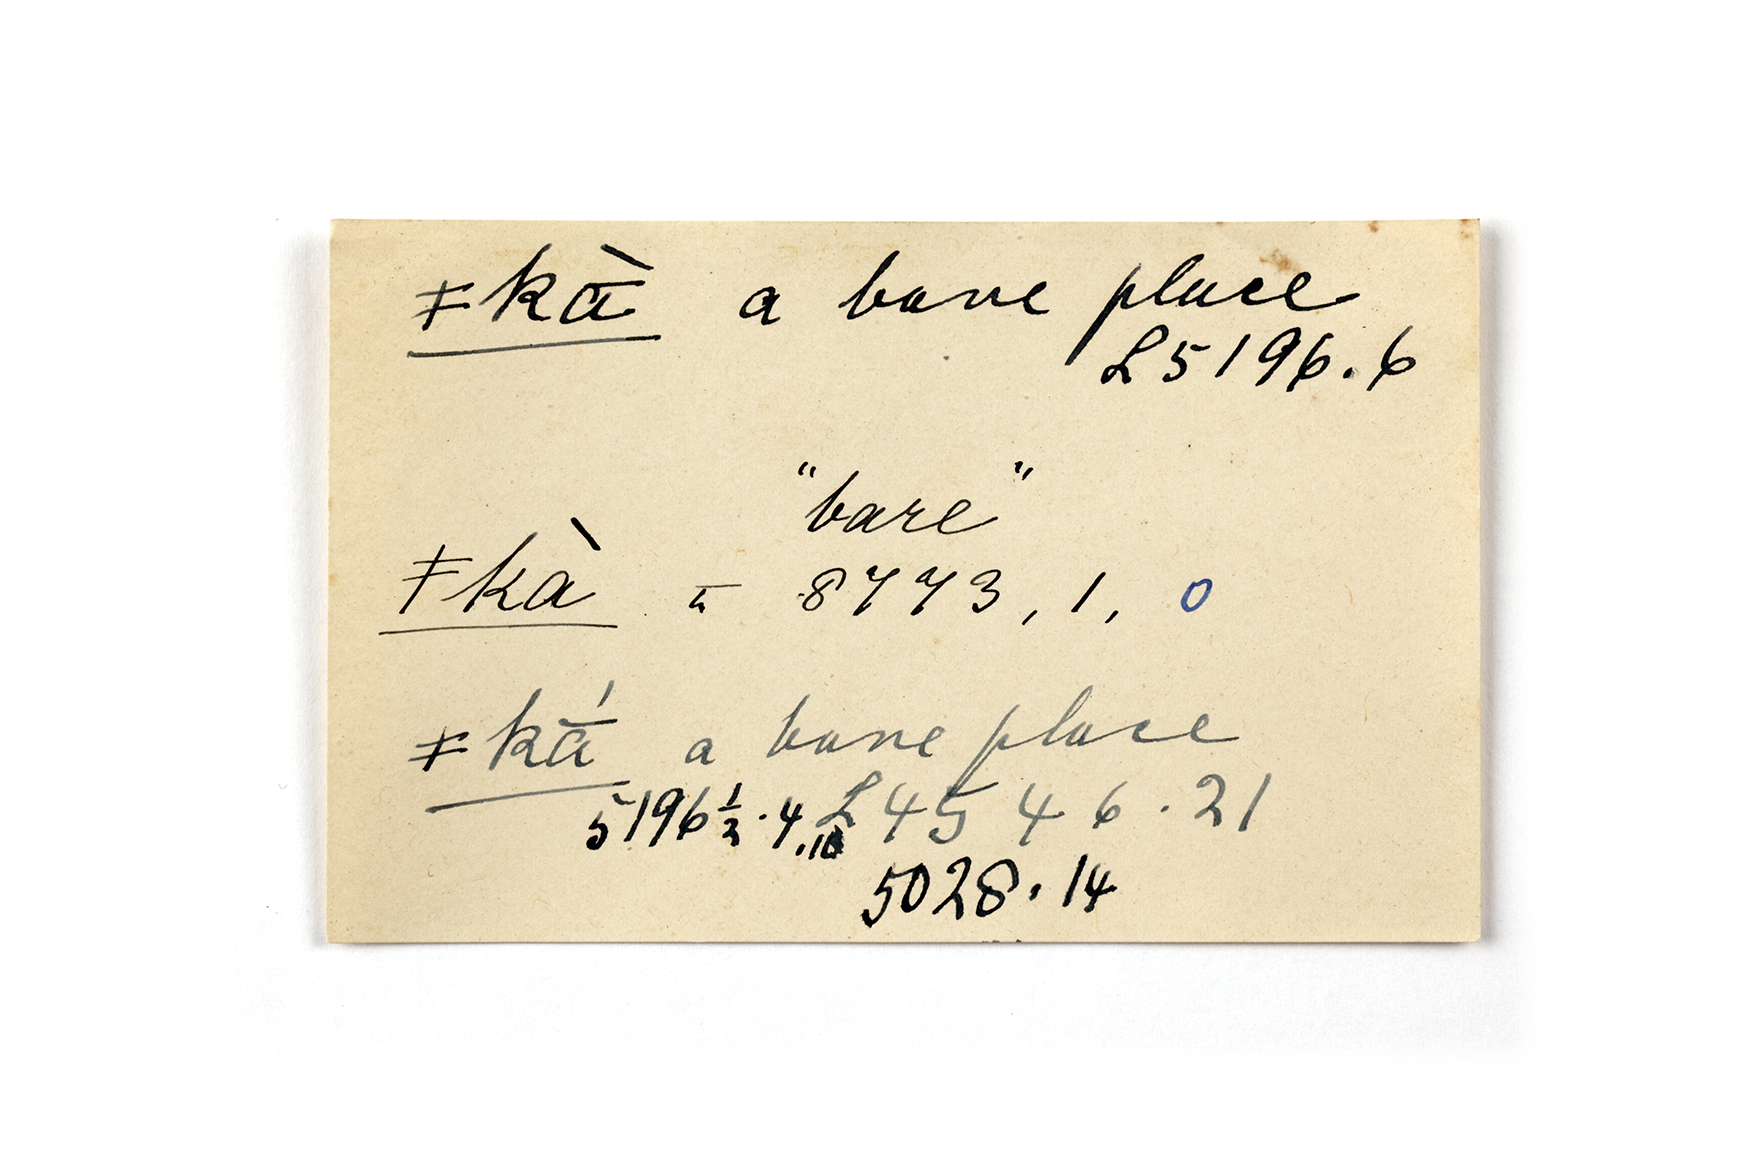 ǂkā̀ a bare place
L5196.6
"bare"
ǂkà = 8773, 1, 0
ǂkā́ a bare place
5196½.4,.10 L4546.21
5028.14